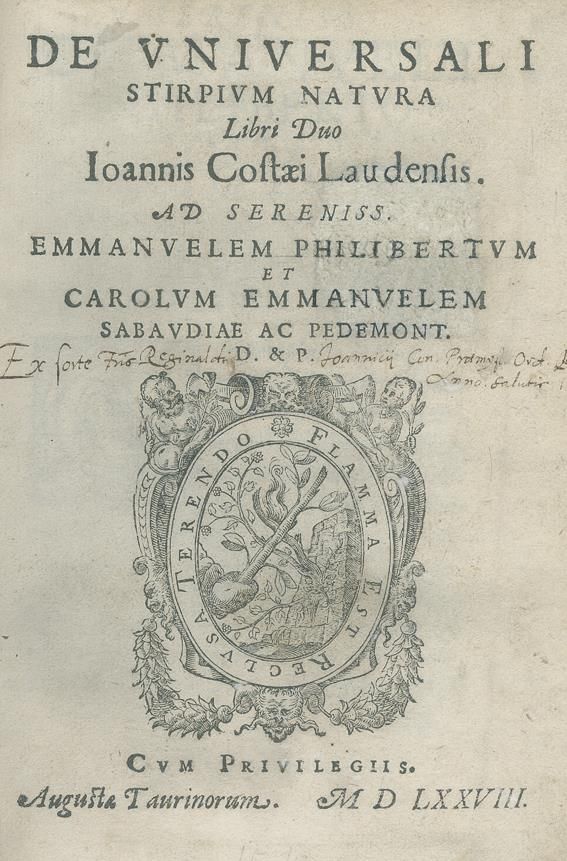 DE VNIVERSALI
STIRPIVM NATVRA
Libri Duo
Ioannis Costæi Laudensis.
AD SERENISS.
EMMANVELEM PHILIBERTVM
ET
CAROLVM EMMANVELEM
SABAVDIAE AC PEDEMONT.
D. & P.
Ex sorte Reginaldi Joannicij Can. Ord.
Anno salutis
TERENDO FLAMMA EST RECLVSA
CVM PRIVILEGIIS.
Augustæ Taurinorum. M D LXXVIII.